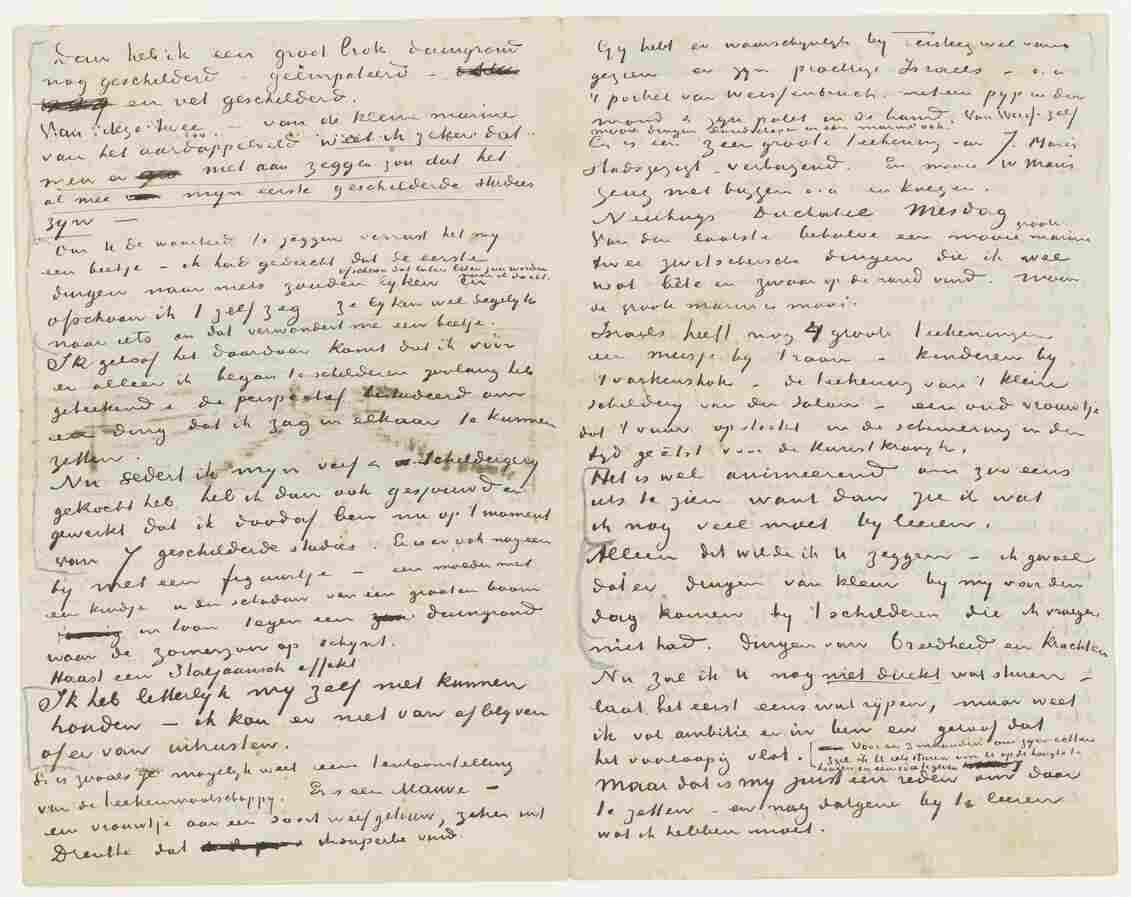 Dan heb ik een groot brok duingrond
nog geschilderd – geëmpateerd –
en vet geschilderd.
Van deze twee – van de kleine marine
van het aardappelveld weet ik zeker dat
men er niet aan zeggen zou dat het
al mee mijn eerste geschilderde studies
zijn –
Om U de waarheid te zeggen verrast het mij
een beetje – ik had gedacht dat de eerste
dingen naar niets zouden lijken
ofschoon dat later beter zou worden
ofschoon ik 't zelf zeg ze lijken wel degelijk
naar iets en dat verwondert me een beetje.
Ik geloof het daardoor komt dat ik vóór
er alleer ik begon te schilderen zoolang heb
geteekend & de perspectief bestudeerd om
een ding dat ik zag in elkaar te kunnen
zetten.
Nu sedert ik mijn verf & schildergerij
gekocht heb heb ik dan ook gesjouwd en
gewerkt dat ik doodaf ben nu op 't moment
van 7 geschilderde studies. Er is er ook nog een
bij met een figuurtje – een moeder met
een kindje in den schaduw van een grooten boom
in toon tegen een duingrond
waar de zomerzon op schijnt.
Haast een Italjaansch effekt
Ik heb letterlijk mij zelf niet kunnen
houden – ik kon er niet van afblijven
of er van uitrusten.
Er is zooals ge mogelijk weet een tentoonstelling
van de teekenmaatschappij. Er is een Mauve –
een vrouwtje aan een soort weefgetouw, zeker uit
Drenthe dat ik superbe vind.
Gij hebt er waarschijnlijk bij Tersteeg wel van
gezien er zijn prachtige Israels – o.a
't portret van Weissenbruch met een pijp in den
mond & zijn palet in de hand. Van Weiss. zelf
mooie dingen landschappen en een marine ook.
Er is een zeer groote teekening van J. Maris
Stadsgezigt verbazend. Een mooie W Maris
zeug met biggen o.a en koeijen.
Neuhuys Duchatel Mesdag
Van den laatste behalve een mooie groote marine
twee zwitsersche dingen die ik wel
wat bête en zwaar op de hand vind. maar
de groote marine is mooi.
Israels heeft nog 4 groote teekeningen
een meisje bij 't raam – kinderen bij
't varkenshok – de teekening van 't klein
schilderij van den Salon – een oud vrouwtje
dat 't vuur opstookt in de schemering in der
tijd geëtst voor de Kunstkronijk.
Het is wel animeerend om zoo eens
iets te zien want dan zie ik wat
ik nog veel moet bij leeren.
Alleen dit wilde ik U zeggen – ik gevoel
dat er dingen van kleur bij mij voor den
dag komen bij 't schilderen die ik vroeger
niet had. Dingen van breedheid en kracht.
Nu zal ik U nog niet direkt wat sturen –
laat het eerst eens wat rijpen, maar weet
ik vol ambitie er in ben en geloof dat
het voorloopig vlot.
Voor een 3 maanden om zijn echter
zal ik U iets sturen om U op de hoogte te
brengen en een idee te geven
Maar dat is mij juist een reden om door
te zetten – en nog datgene bij te leeren
wat ik hebben moet.